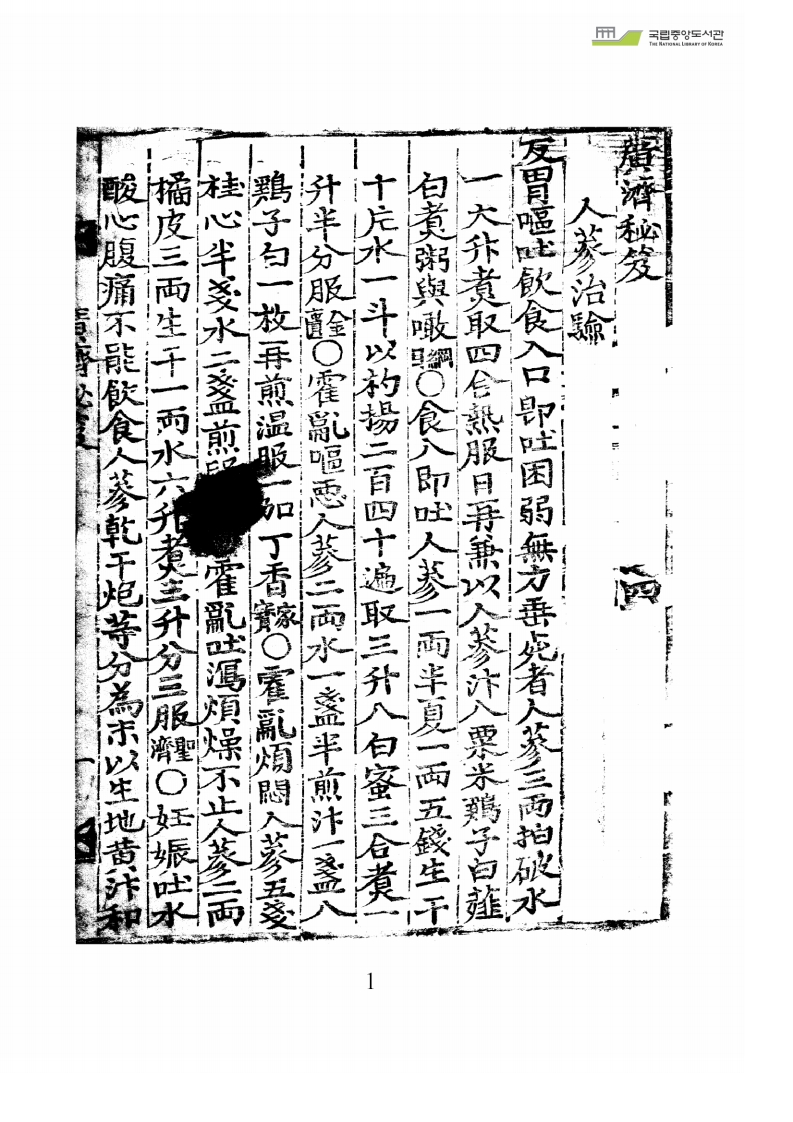 국립중앙도서관
THE NATIONAL LIBRARY OF KOREA
廣濟秘笈 四
人蔘治驗
反胃嘔吐飮食入口卽吐困弱無方垂死者人蔘三兩拍破水
一大升煮取四合熱服日再兼以人蔘汁入粟米鷄子白薤
白煮粥與噉綱目○食入即吐人蔘一兩半夏一兩五錢生干
十片水一斗以杓揚二百四十遍取三升入白蜜三合煮一
升半分服金匱○霍亂嘔惡人蔘二兩水一盞半煎汁一盞入
鷄子白一枚再煎温服一加丁香家寶○霍亂煩悶人蔘五戔
桂心半戔水二盞煎服 霍亂吐瀉煩燥不止人蔘二兩
橘皮三兩生干一兩水六升煮三升分三服聖濟○妊娠吐水
酸心腹痛不能飮食人蔘乾干炮等分為末以生地黄汁和
廣濟秘笈
一
1